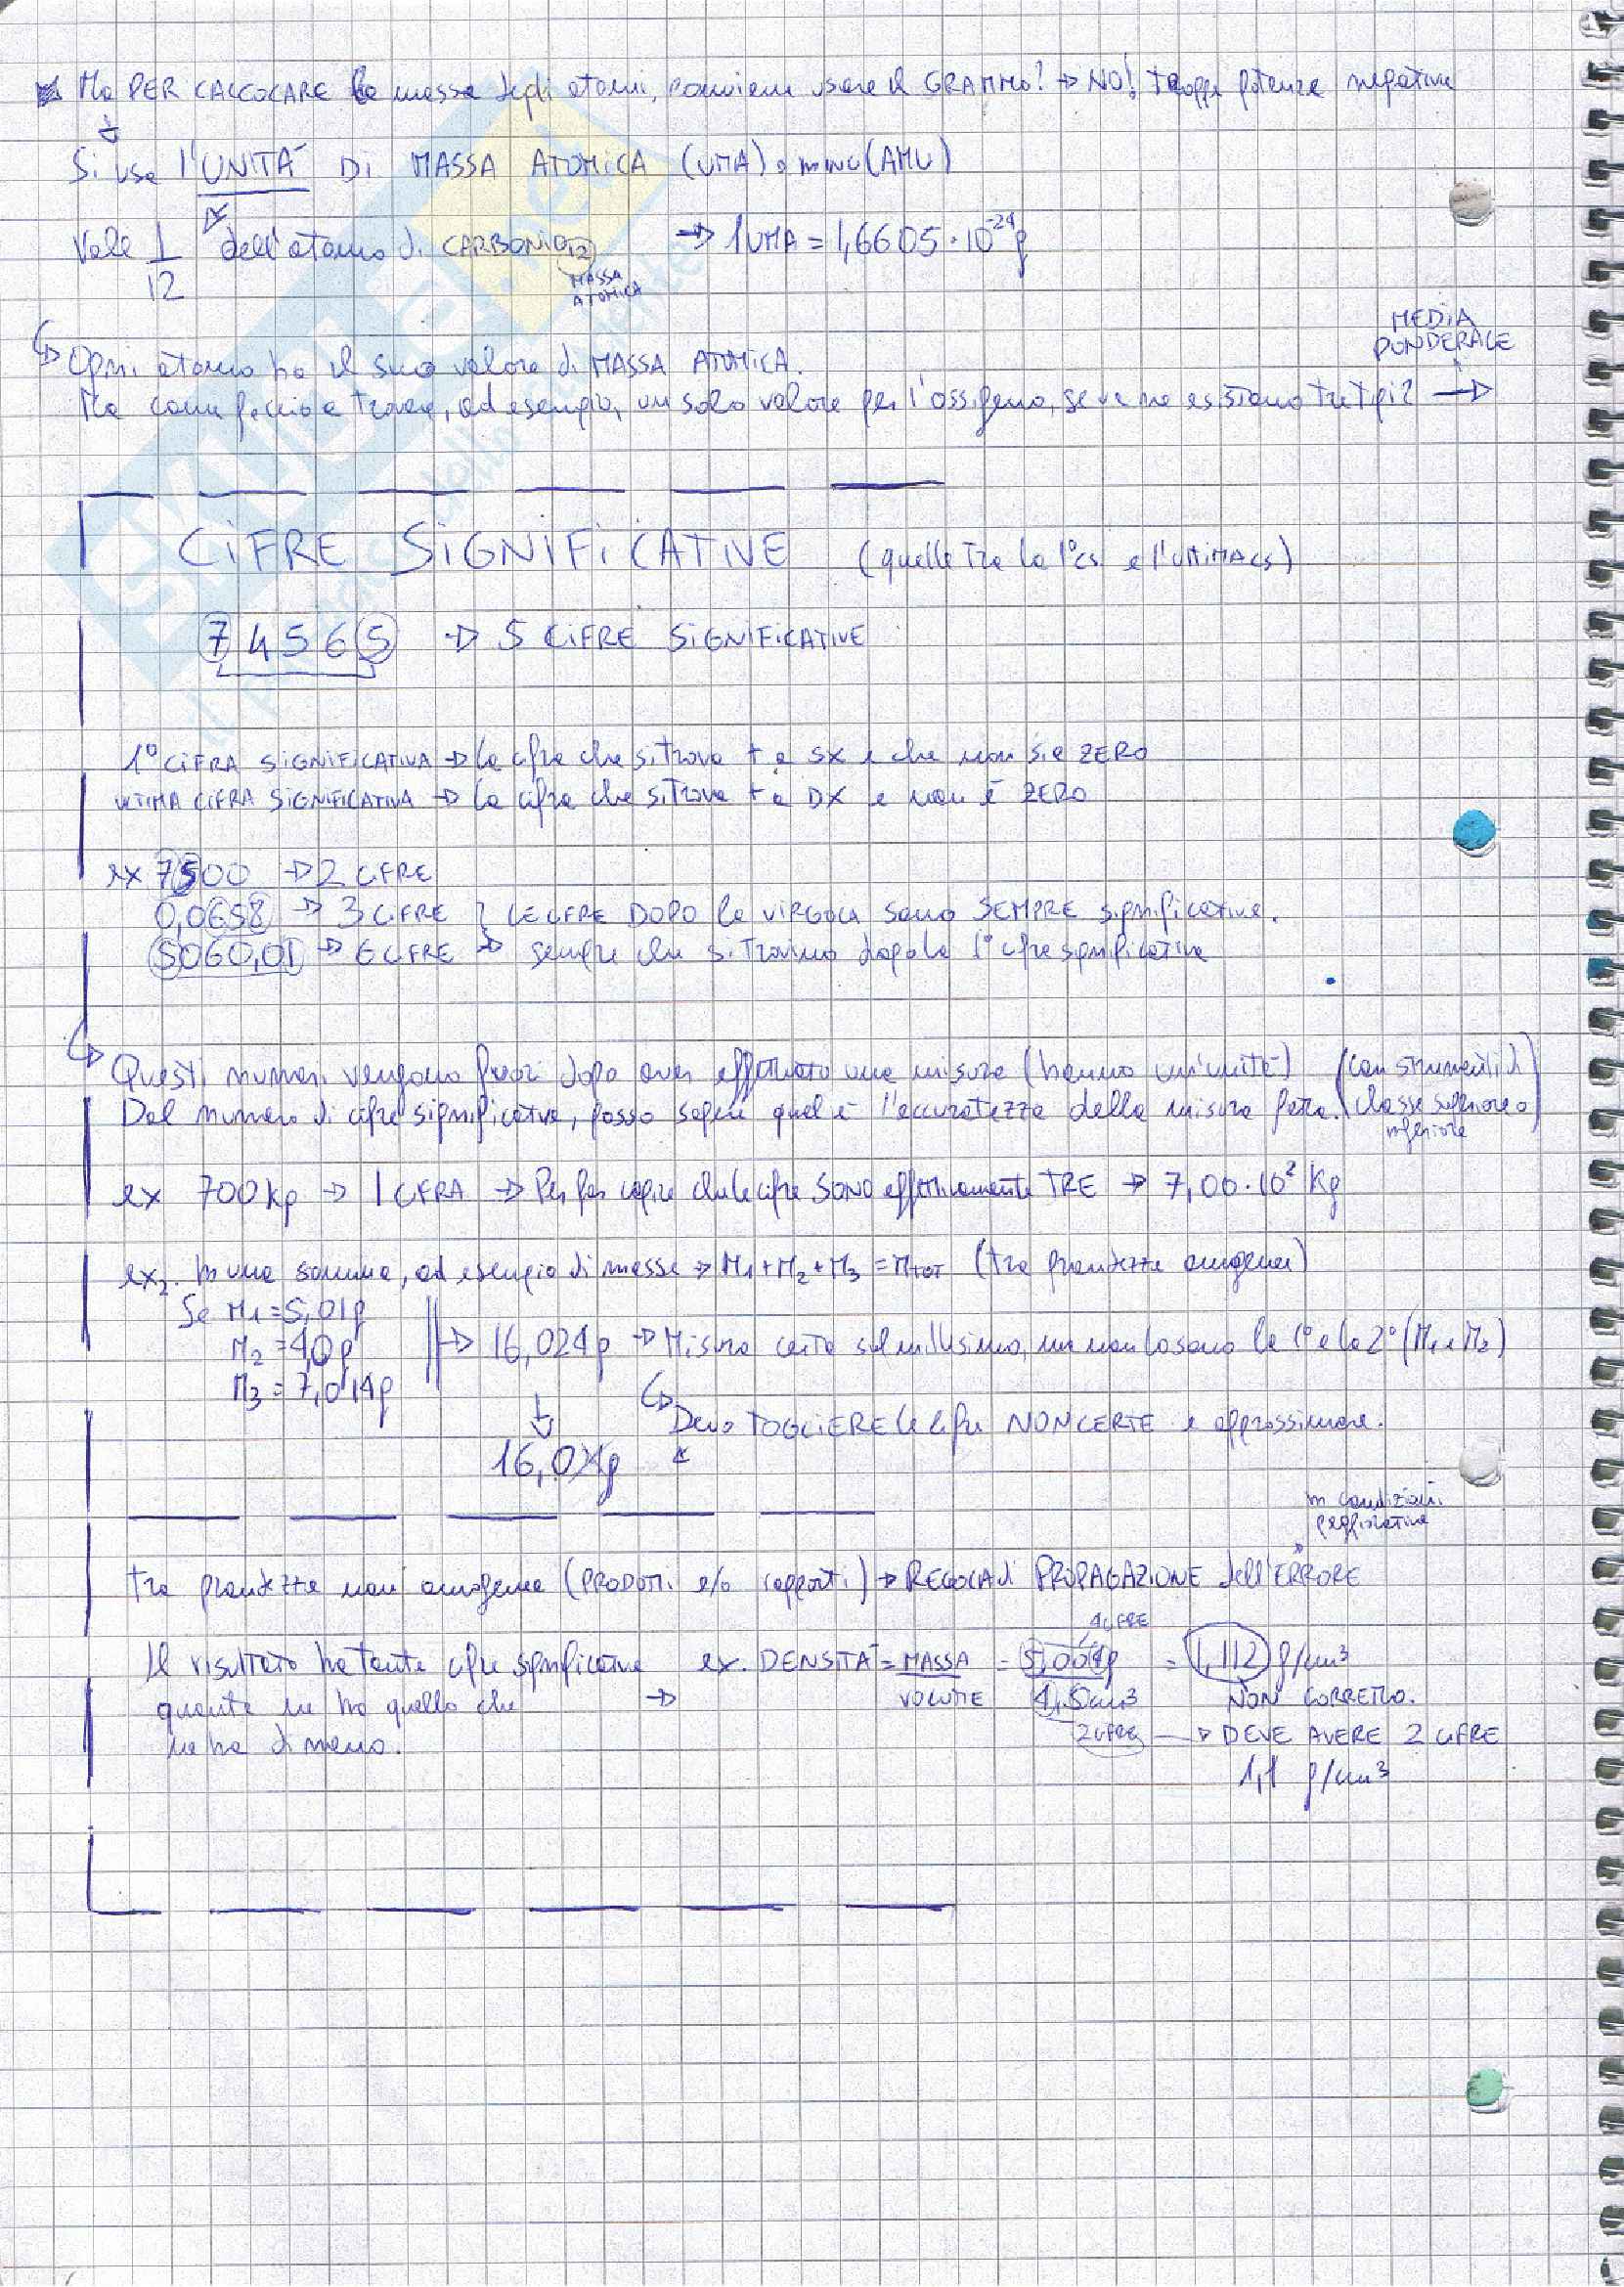 Ma PER CALCOLARE le massa degli atomi, conviene usare il GRAMMO? → NO! troppe potenze negative
Si usa l'UNITÀ DI MASSA ATOMICA (UMA) o (AMU)
Vale 1/12 dell'atomo di CARBONIO 12 → 1 UMA = 1,6605·10⁻²⁴ g
MASSA
ATOMICA
MEDIA
PONDERALE
Ogni atomo ha il suo valore di MASSA ATOMICA.
Ma come faccio a trovare, ad esempio, un solo valore per l'ossigeno, se ve ne esistono tre tipi? →
CIFRE SIGNIFICATIVE (quelle tra la 1° cs e l'ULTIMA cs)
74565 → 5 CIFRE SIGNIFICATIVE
1° CIFRA SIGNIFICATIVA → la cifra che si trova + a SX e che non sia ZERO
ULTIMA CIFRA SIGNIFICATIVA → la cifra che si trova + a DX e non è ZERO
ex 7500 → 2 CIFRE
0,0658 → 3 CIFRE } LE CIFRE DOPO la VIRGOLA sono SEMPRE significative.
5060,01 → 6 CIFRE → sempre che si trovino dopo la 1° cifra significativa
Questi numeri vengono fuori dopo aver effettuato una misura (hanno un'unità) (con strumenti di
Dal numero di cifre significative, posso sapere qual è l'accuratezza della misura fatta. classe superiore o
inferiore)
ex 700 kg → 1 CIFRA → Per far capire che le cifre SONO effettivamente TRE → 7,00·10² Kg
ex₂. In una somma, ad esempio di masse → M₁+M₂+M₃ = MTOT (tra grandezze omogenee)
Se M₁ = 5,01g
M₂ = 4,0g
M₃ = 7,014g
→ 16,024g → Misura certa sul millesimo, ma non lo sono la 1° e la 2° (M₁ e M₂)
Devo TOGLIERE le cifre NON CERTE e approssimare.
16,0 g
in condizioni
peggiorative
Tra grandezze non omogenee (PRODOTTI e/o rapporti) → REGOLA di PROPAGAZIONE dell'ERRORE
Il risultato ha tante cifre significative
quante ne ha quello che →
ne ha di meno.
4 CIFRE
ex. DENSITÀ = MASSA/VOLUME = 5,004g/4,5cm³ = 1,112 g/cm³
NON CORRETTO.
2 CIFRE → DEVE AVERE 2 CIFRE
1,1 g/cm³